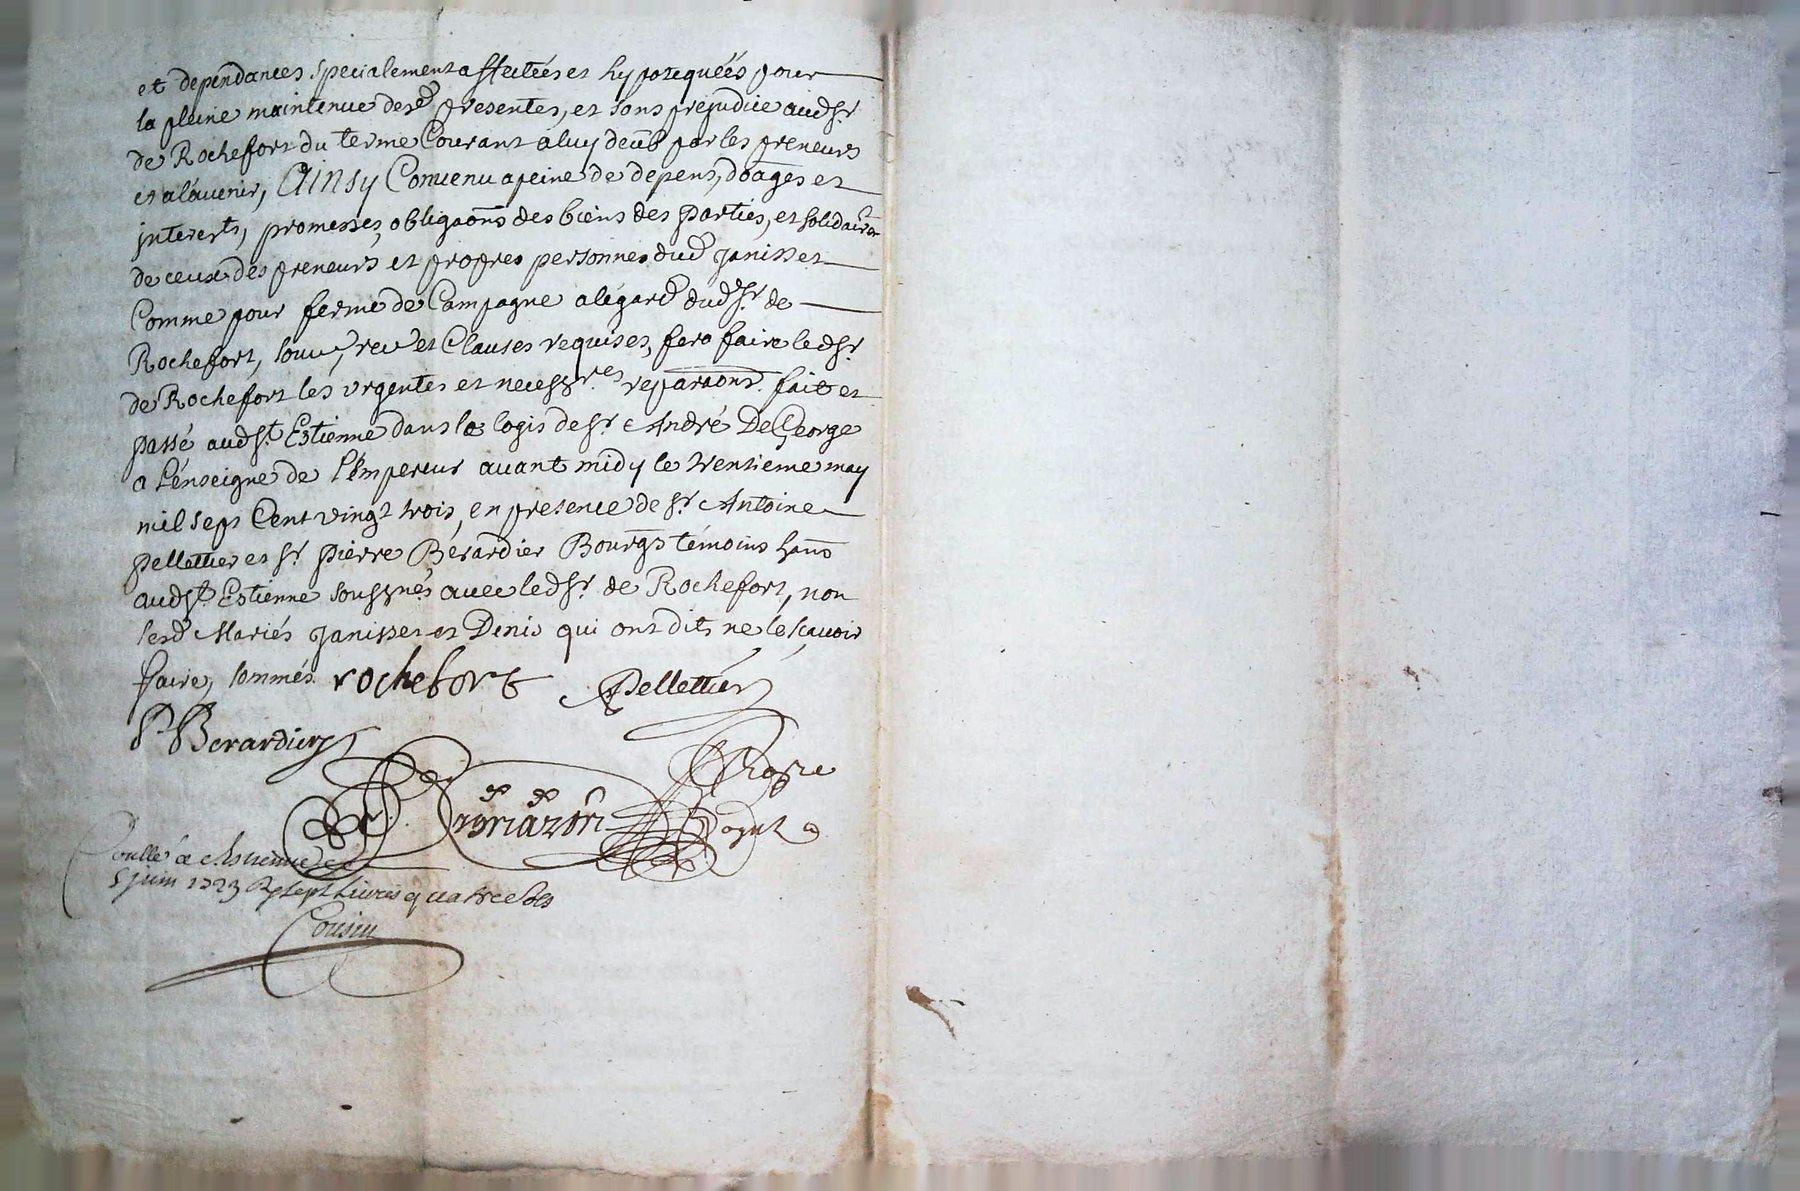 et dependances specialement affectées et hypotequéés pour
la pleine maintenue desd presentes, et sans prejudice aud Sr
de Rochefort du terme Courant a luy deub par les preneurs
et a l'avenir, Ainsy Convenu a peine de depens, doages et
interests, promesses, obligaons des biens des parties, et solidairem
de ceux des preneurs et propres personnes dud janisset
Comme pour ferme de Campagne a légard dud Sr de
Rochefort, soum, ren et Clauses requises, fera faire led Sr
de Rochefort les urgentes et necessres reparaons. fait et
passé aud St Estienne dans le logis de Sr André DeGeorge
a L'enseigne de L'empereur avant midy le trentieme may
mil sept Cent vingt trois, en presence de Sr Antoine
pellettier et Sr pierre Berardier Bourgs témoins hans
aud St Estienne soussnés avec led Sr de Rochefort, non
lesd Mariés janisset et Denis qui ont dit ne le sçavoir
faire, sommés rochefort Pellettier
P Berardier

Conllé a St Estienne le
5 juin 1723 R sept Livres quatre sols
Cousin